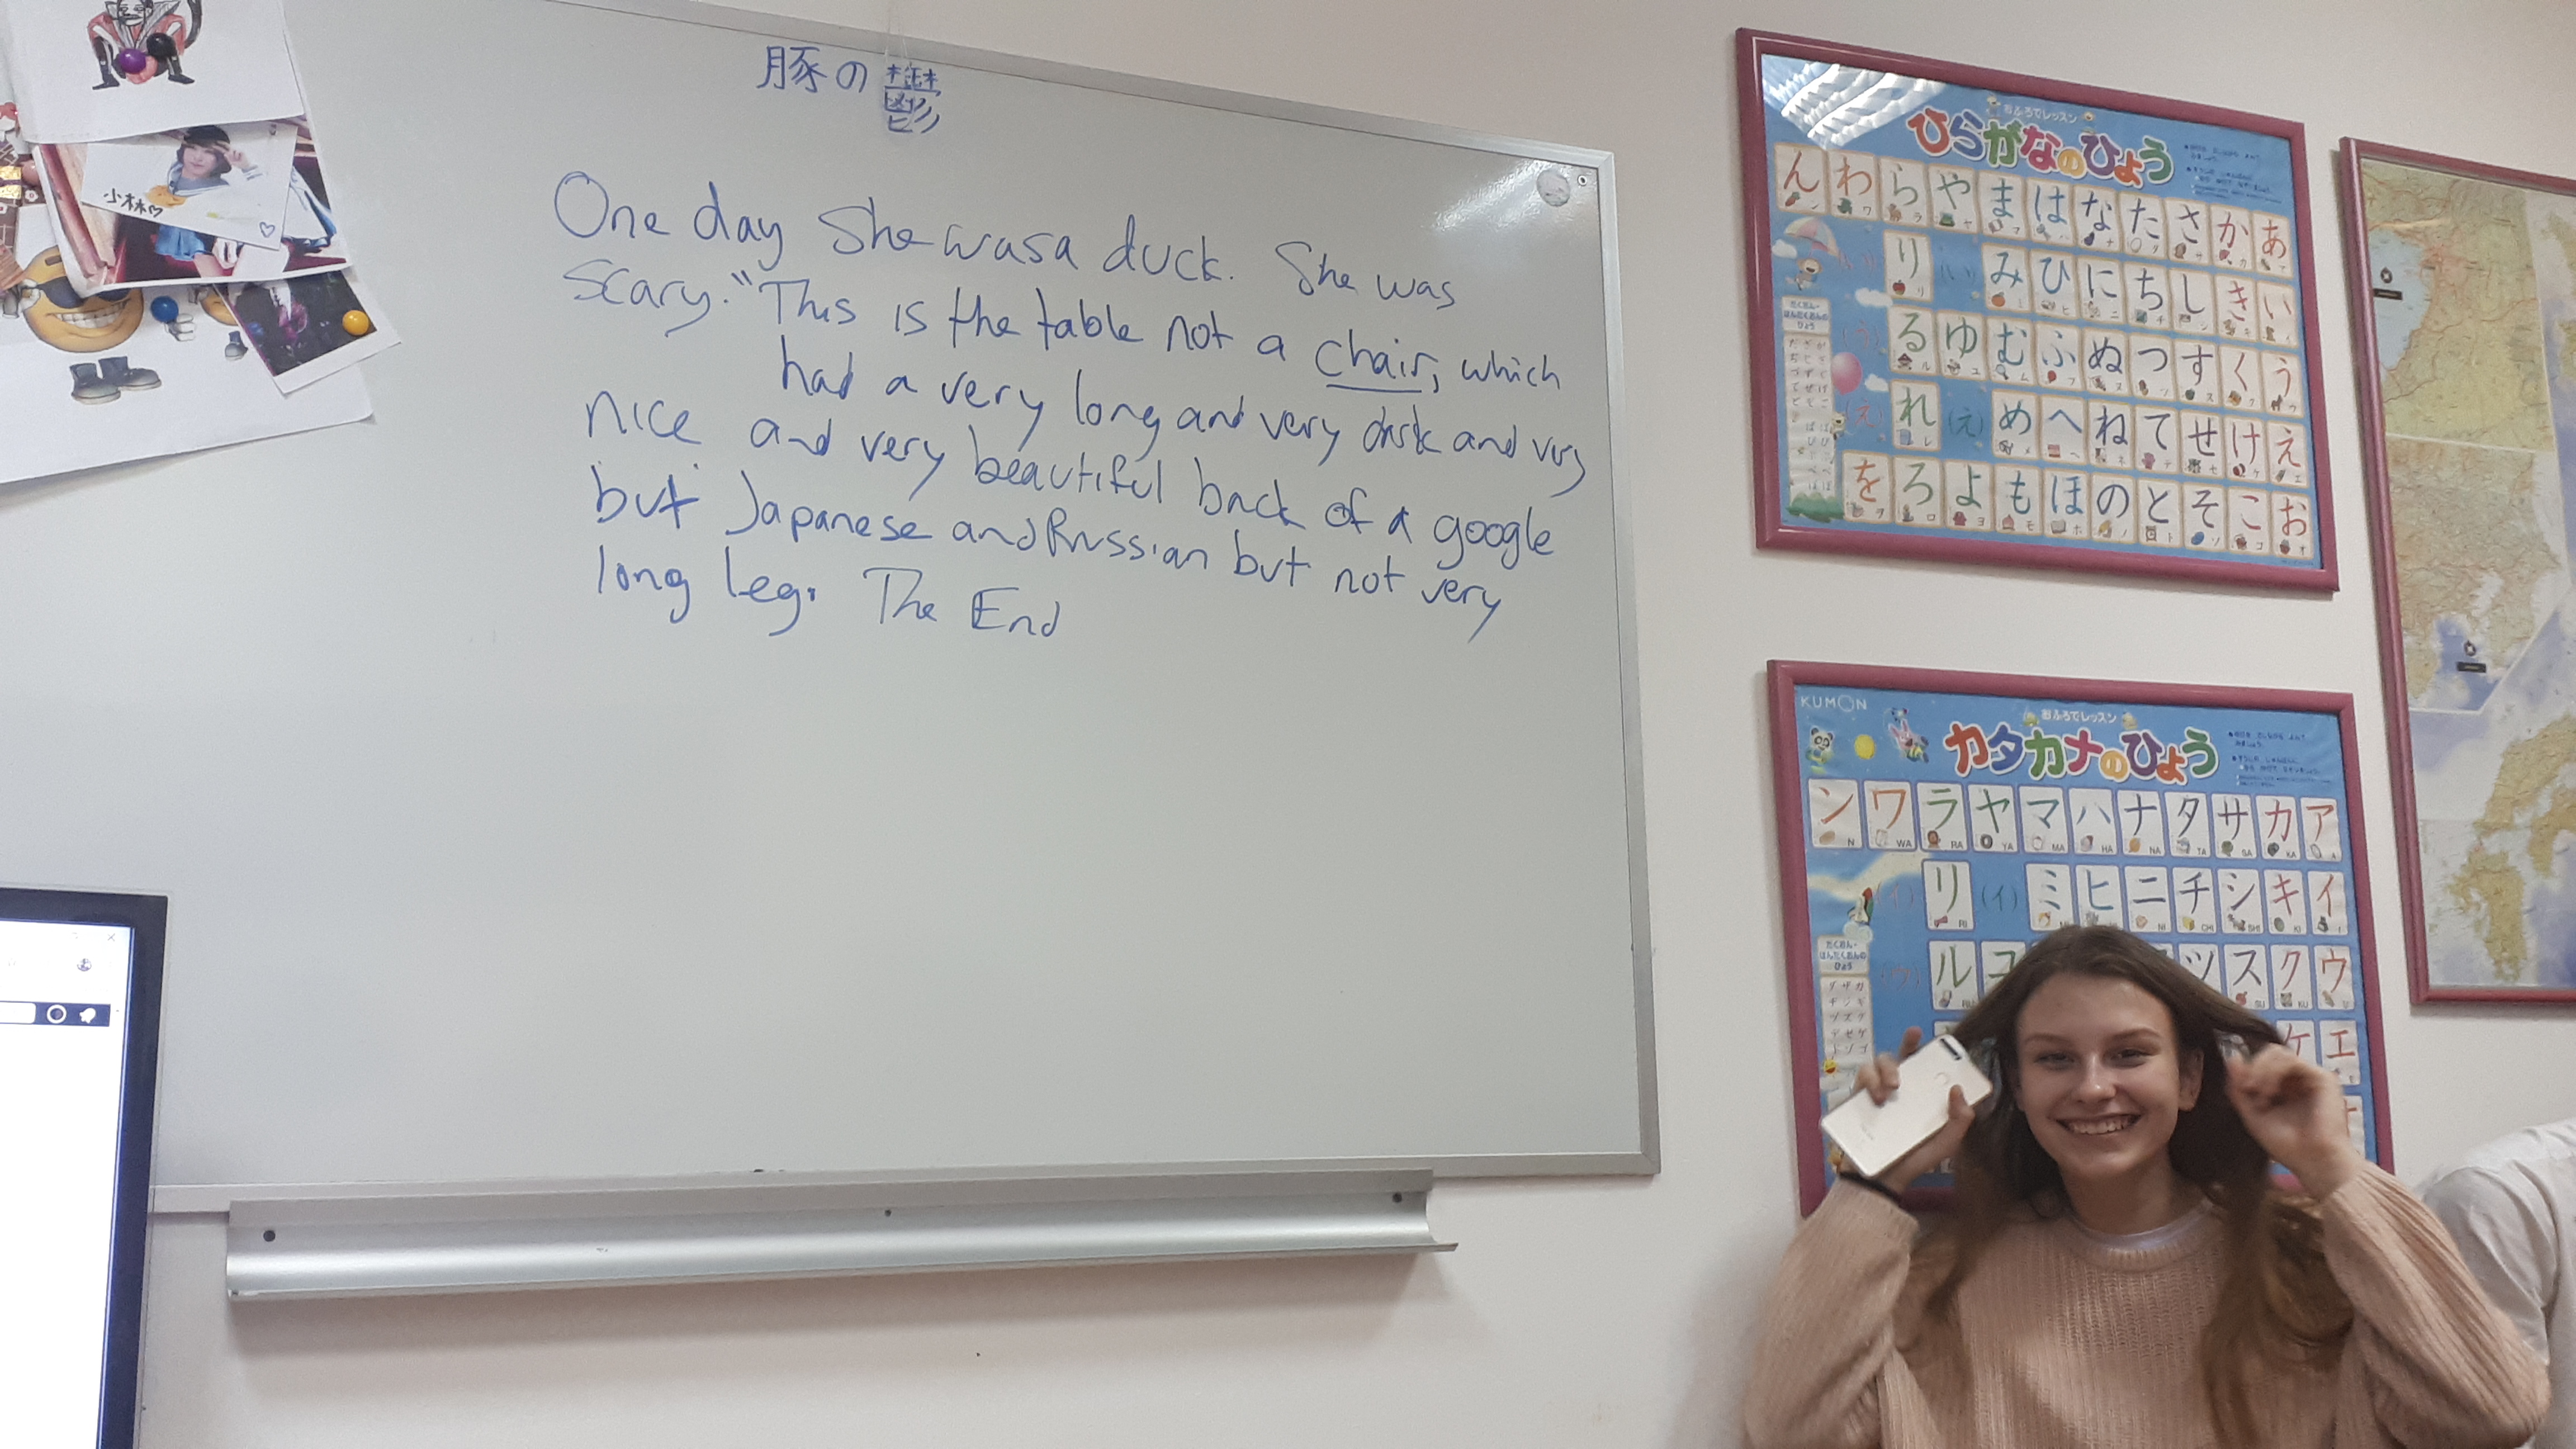 豚の鬱
One day She was a duck. She was
Scary. "This is the table not a chair, which
had a very long and very dark and very
nice and very beautiful back of a google
but Japanese and Russian but not very
long leg. The End
小林♡
おふろでレッスン
ひらがなのひょう
んわらやまはなたさかあ
り(い)みひにちしきい
(う)るゆむふぬつすくう
(え)れ(え)めへねてせけえ
をろよもほのとそこお
だくおん・
はんだくおんの
ひょう
KUMON
おふろでレッスン
カタカナのひょう
ンワラヤマハナタサカア
N WA RA YA MA HA NA TA SA KA A
(イ)リ(イ)ミヒニチシキイ
RI NI CHI SHI KI I
(ウ)ルユツスクウ
SU KU U
ケエ
だくおん・
はんだくおんの
ひょう